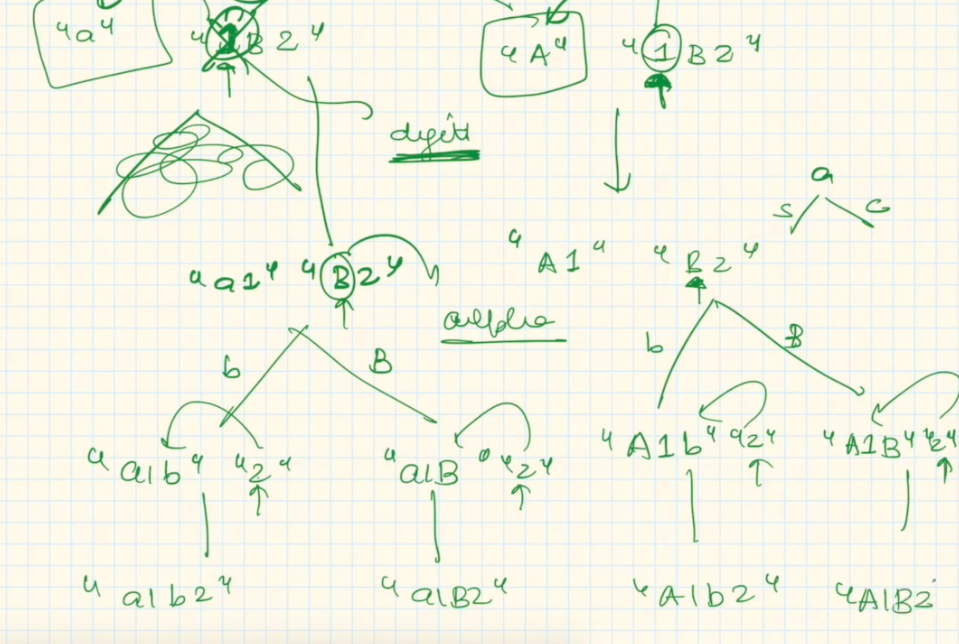 "a" "1B2" "A" "1B2"
digit
a
S C
"a1" "B2" "A1" "B2"
alpha
b B b B
"a1b" "2" "a1B" "2" "A1b" "2" "A1B" "2"
"a1b2" "a1B2" "A1b2" "A1B2